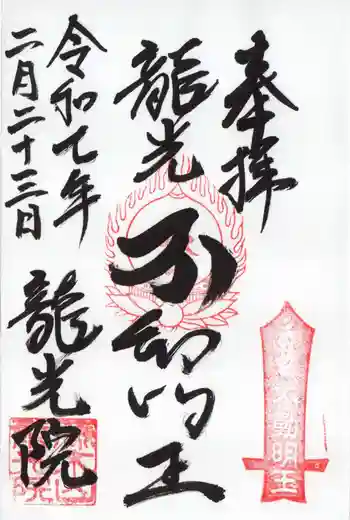 奉拝
龍光
不動明王
令和七年
二月二十三日
龍光院
不動明王